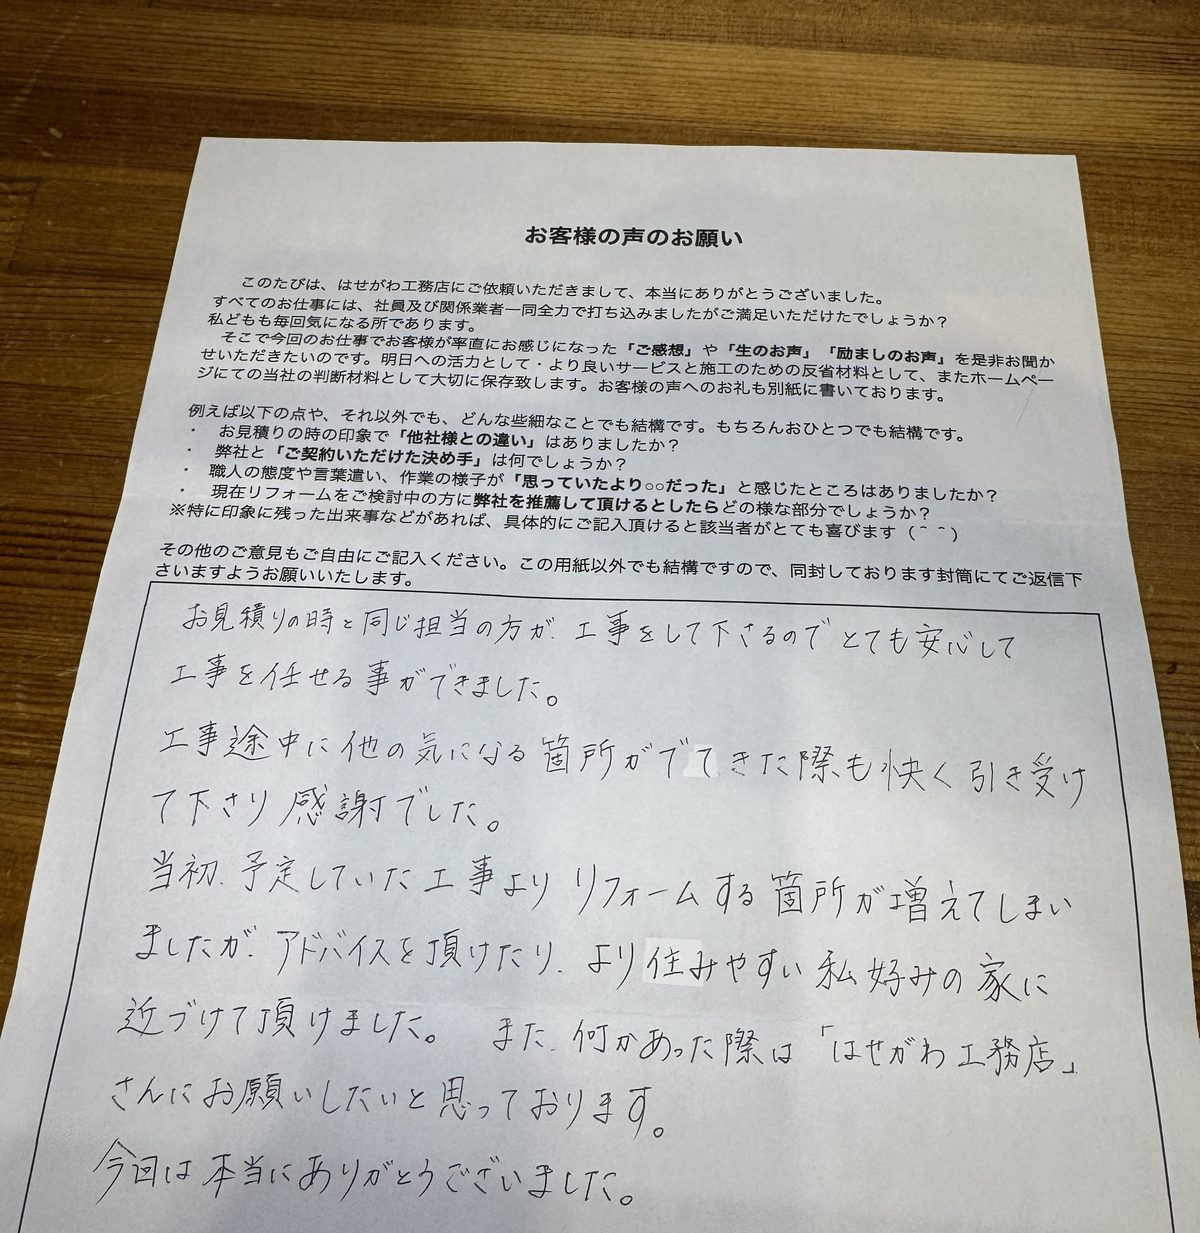 お客様の声のお願い
このたびは、はせがわ工務店にご依頼いただきまして、本当にありがとうございました。
すべてのお仕事には、社員及び関係業者一同全力で打ち込みましたがご満足いただけたでしょうか？
私どもも毎回気になる所であります。
そこで今回のお仕事でお客様が率直にお感じになった「ご感想」や「生のお声」「励ましのお声」を是非お聞か
せいただきたいのです。明日への活力として・より良いサービスと施工のための反省材料として、またホームペー
ジにての当社の判断材料として大切に保存致します。お客様の声へのお礼も別紙に書いております。
例えば以下の点や、それ以外でも、どんな些細なことでも結構です。もちろんおひとつでも結構です。
・ お見積りの時の印象で「他社様との違い」はありましたか？
・ 弊社と「ご契約いただけた決め手」は何でしょうか？
・ 職人の態度や言葉遣い、作業の様子が「思っていたより○○だった」と感じたところはありましたか？
・ 現在リフォームをご検討中の方に弊社を推薦して頂けるとしたらどの様な部分でしょうか？
※特に印象に残った出来事などがあれば、具体的にご記入頂けると該当者がとても喜びます（＾＾）
その他のご意見もご自由にご記入ください。この用紙以外でも結構ですので、同封しております封筒にてご返信下
さいますようお願いいたします。
お見積りの時と同じ担当の方が、工事をして下さるのでとても安心して
工事を任せる事ができました。
工事途中に他の気になる箇所がでてきた際も快く引き受け
て下さり感謝でした。
当初、予定していた工事よりリフォームする箇所が増えてしまい
ましたが、アドバイスを頂けたり、より住みやすい私好みの家に
近づけて頂けました。 また、何かあった際は「はせがわ工務店」
さんにお願いしたいと思っております。
今回は本当にありがとうございました。